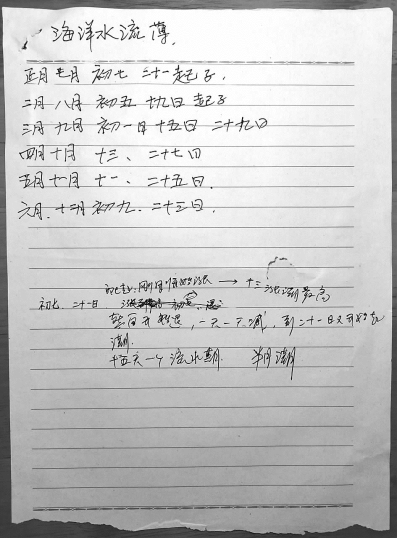 海洋水流薄.
正月七月 初七 二十一起子.
二月八月 初五 十九日 起子
三月九月 初一日 十五日 二十九日
四月十月 十三、二十七日
五月十一月 十一、二十五日.
六月.十二月初九、二十三日.
初七:刚刚开始涨 → 十三涨潮最高
初七、二十一日
开始退,一天一天减,到二十一日又开始起
潮.
十五天一个流水潮. 半月潮